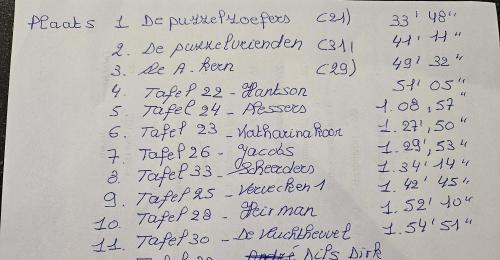 Plaats 1 De puzzelzoefers (21) 33' 48"
2. De puzzelvrienden (31) 41' 11"
3. De A. kern (29) 49' 32"
4 Tafel 22 - Hantson 51' 05"
5 Tafel 24 - Messers 1.08',57"
6. Tafel 23 - Katharinakoor 1.27',50"
7. Tafel 26 - Jacobs 1.29',53"
8. Tafel 33 - Scheerders 1.34' 14"
9. Tafel 25 - Vervecken 1 1.42' 45"
10. Tafel 28 - Heirman 1.52' 10"
11. Tafel 30 - De Vluchtheuvel 1.54' 51"
Dils Dirk